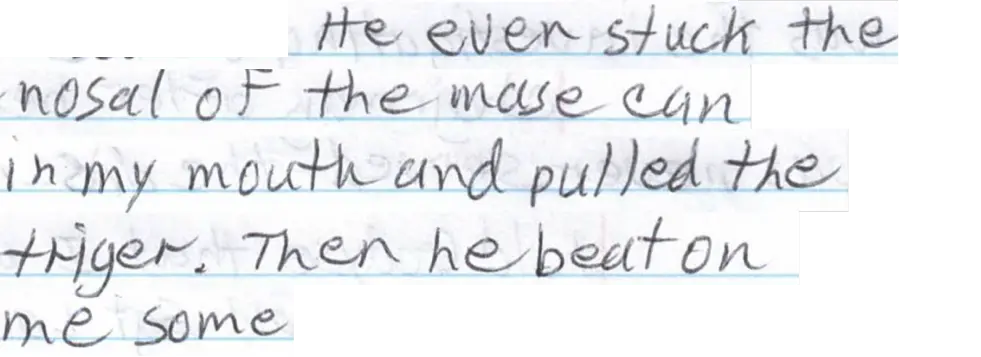 He even stuck the
nosal of the mase can
in my mouth and pulled the
triger. Then he beat on
me some